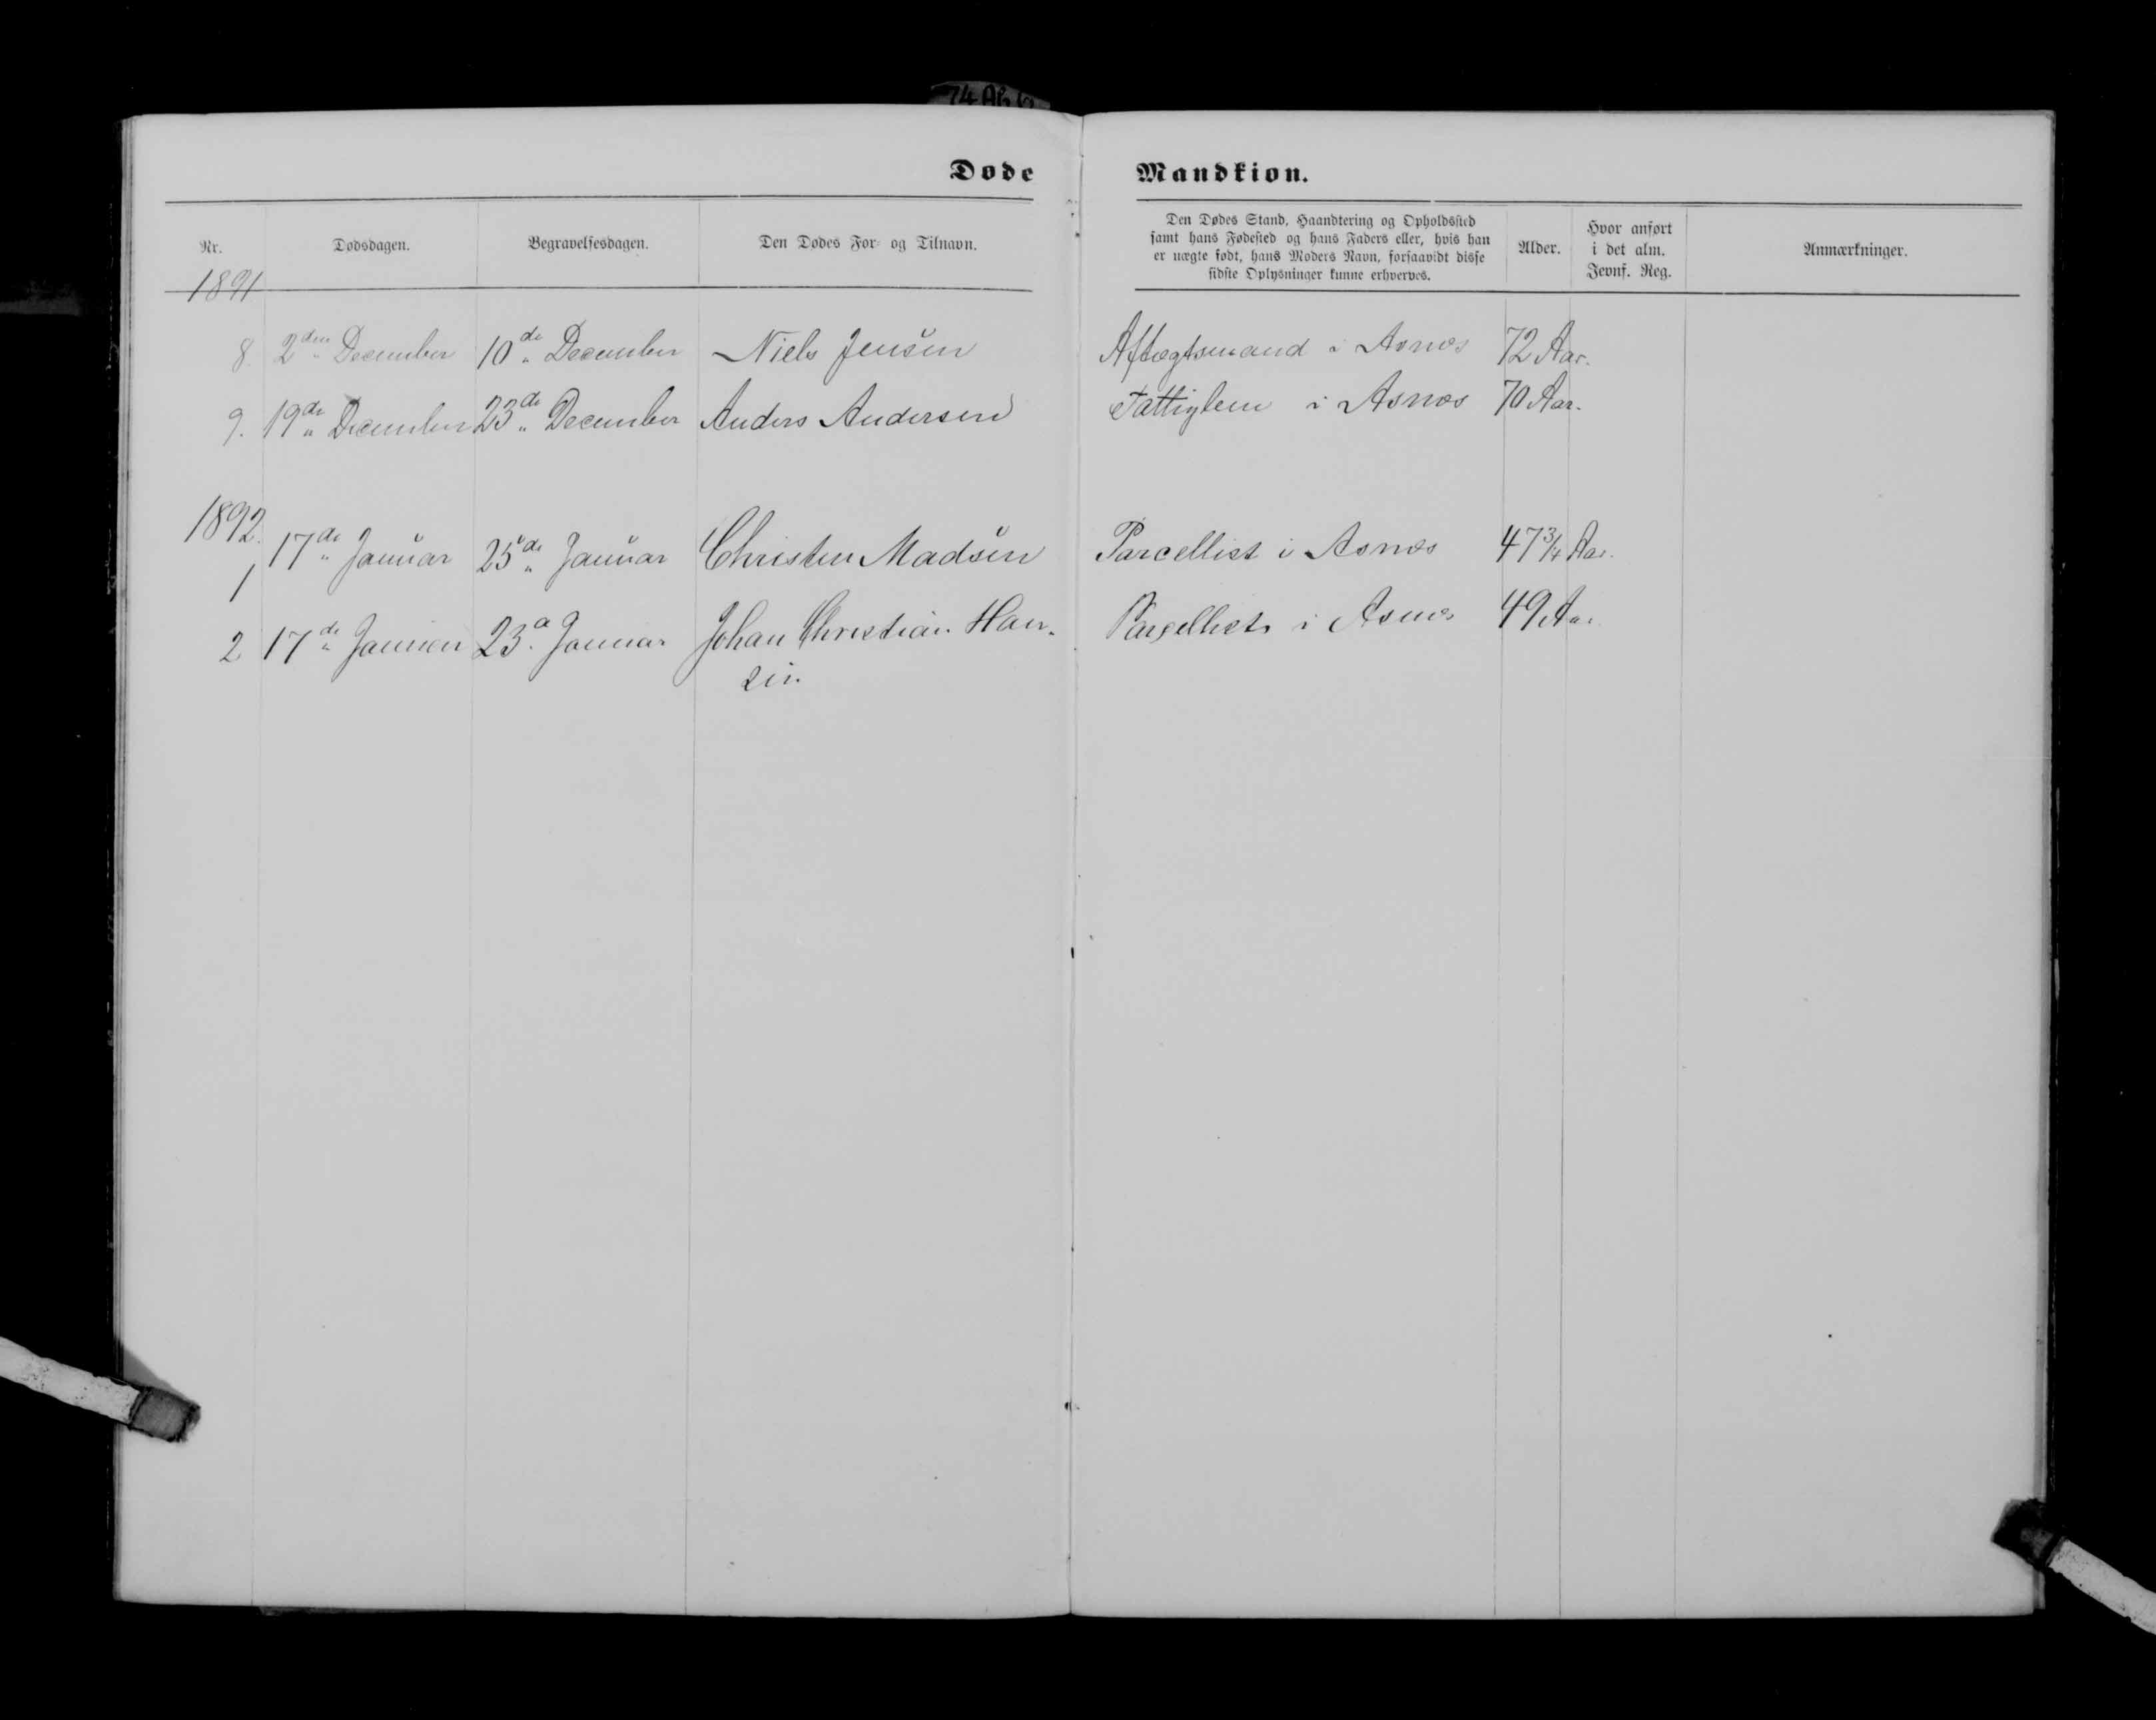 74 AB 6
Døde Mandkion.
Nr. Dødsdagen. Begravelsesdagen. Den Dødes For- og Tilnavn.
Den Dødes Stand, Haandtering og Opholdssted
samt hans Fødested og hans Faders eller, hvis han
er uægte født, hans Moders Navn, forsaavidt disse
sidste Oplysninger kunne erhverves.
Alder.
Hvor anført
i det alm.
Jevnf. Reg.
Anmærkninger.
1891
8. 2den December 10de December Niels Jensen Aftægtsmand i Asnæs 72 Aar.
9. 19de December 23de December Anders Andersen Fattiglem i Asnæs 70 Aar.
1892.
1 17de Januar 25de Januar Christen Madsen Parcellist i Asnæs 47 3/4 Aar.
2 17de Januar 23d Januar Johan Christian Han- Parcellist i Asnæs 49 Aar
sen.